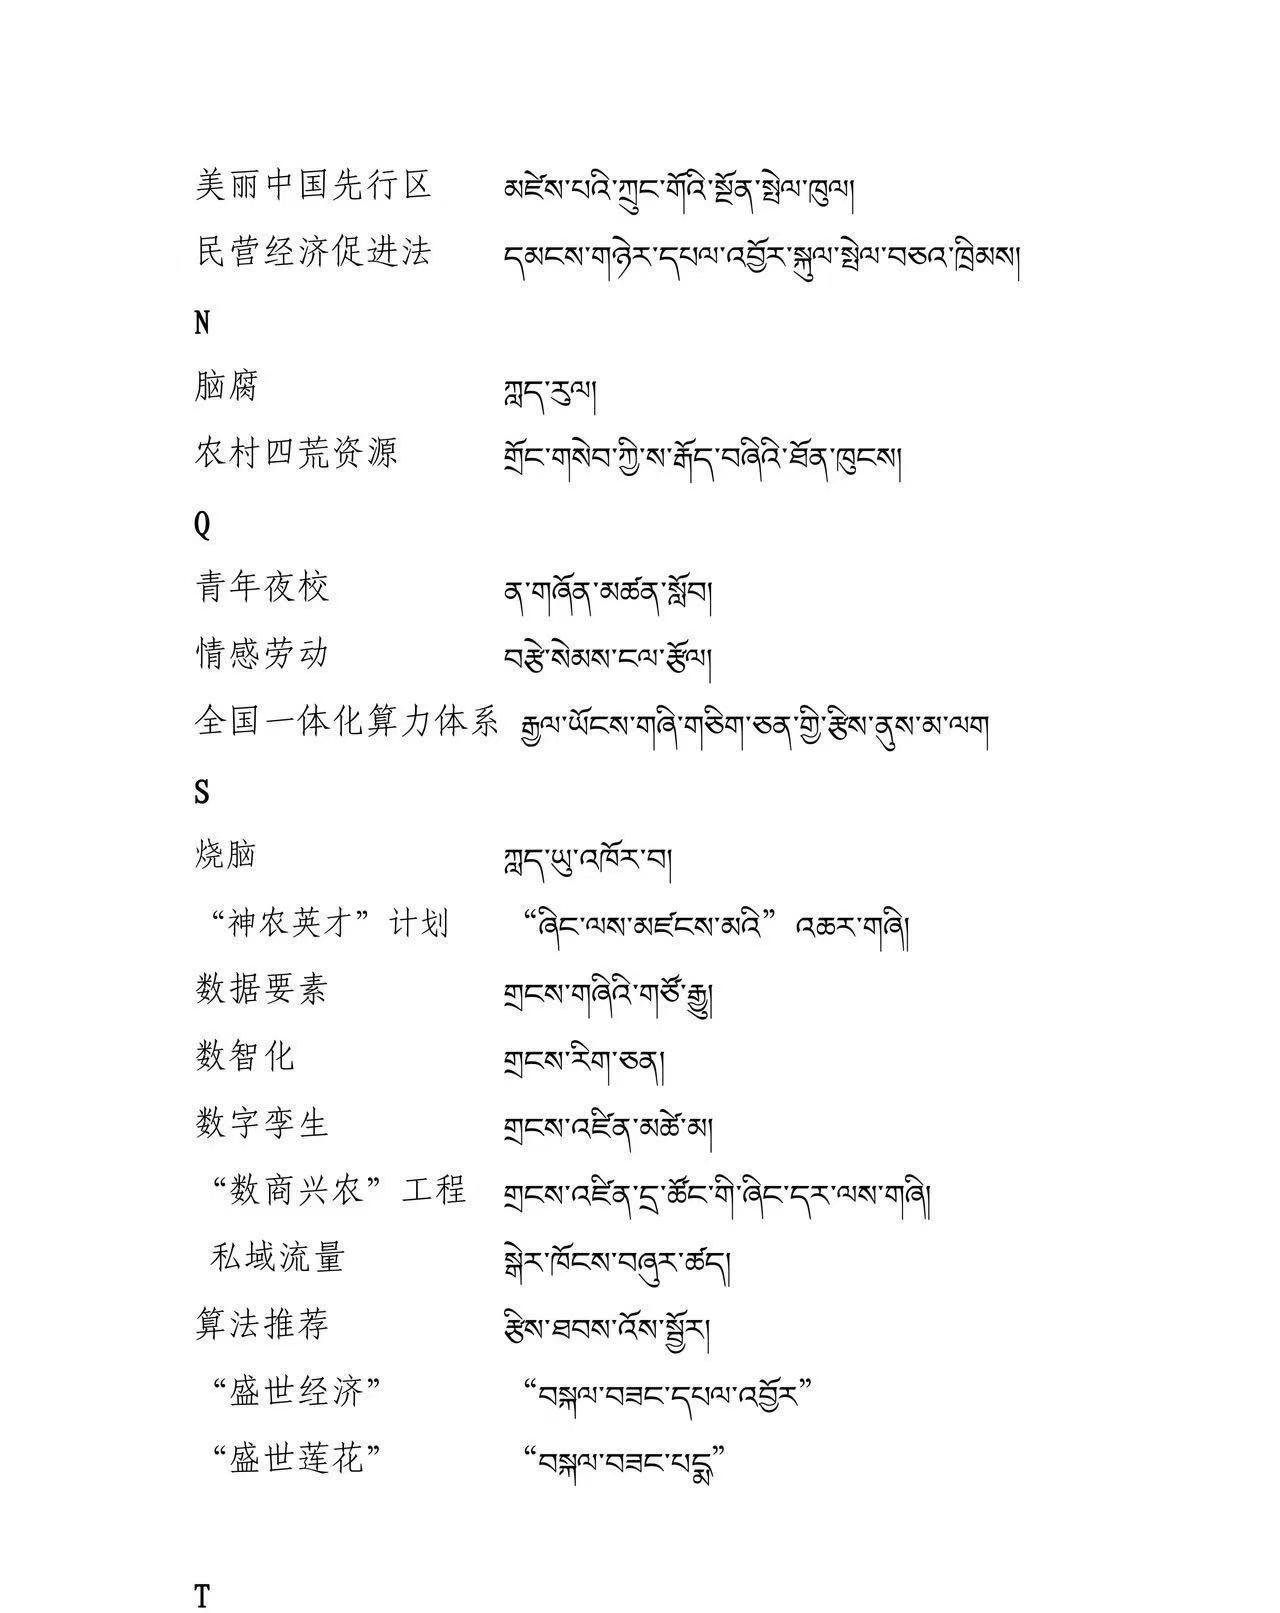 美丽中国先行区 མཛེས་པའི་ཀྲུང་གོའི་སྔོན་སྤེལ་ཁུལ།
民营经济促进法 དམངས་གཉེར་དཔལ་འབྱོར་སྐུལ་སྤེལ་བཅའ་ཁྲིམས།
N
脑腐 ཀླད་རུལ།
农村四荒资源 གྲོང་གསེབ་ཀྱི་ས་རྒོད་བཞིའི་ཐོན་ཁུངས།
Q
青年夜校 ན་གཞོན་མཚན་སློབ།
情感劳动 བརྩེ་སེམས་ངལ་རྩོལ།
全国一体化算力体系 རྒྱལ་ཡོངས་གཞི་གཅིག་ཅན་གྱི་རྩིས་ནུས་མ་ལག
S
烧脑 ཀླད་ཡུ་འཁོར་བ།
“神农英才”计划 “ཞིང་ལས་མཛངས་མའི” འཆར་གཞི།
数据要素 གྲངས་གཞིའི་གཙོ་རྒྱུ།
数智化 གྲངས་རིག་ཅན།
数字孪生 གྲངས་འཛིན་མཚེ་མ།
“数商兴农”工程 གྲངས་འཛིན་དྲ་ཚོང་གི་ཞིང་དར་ལས་གཞི།
私域流量 སྒེར་ཁོངས་བཞུར་ཚད།
算法推荐 རྩིས་ཐབས་འོས་སྦྱོར།
“盛世经济” “བསྐལ་བཟང་དཔལ་འབྱོར”
“盛世莲花” “བསྐལ་བཟང་པདྨ”
T